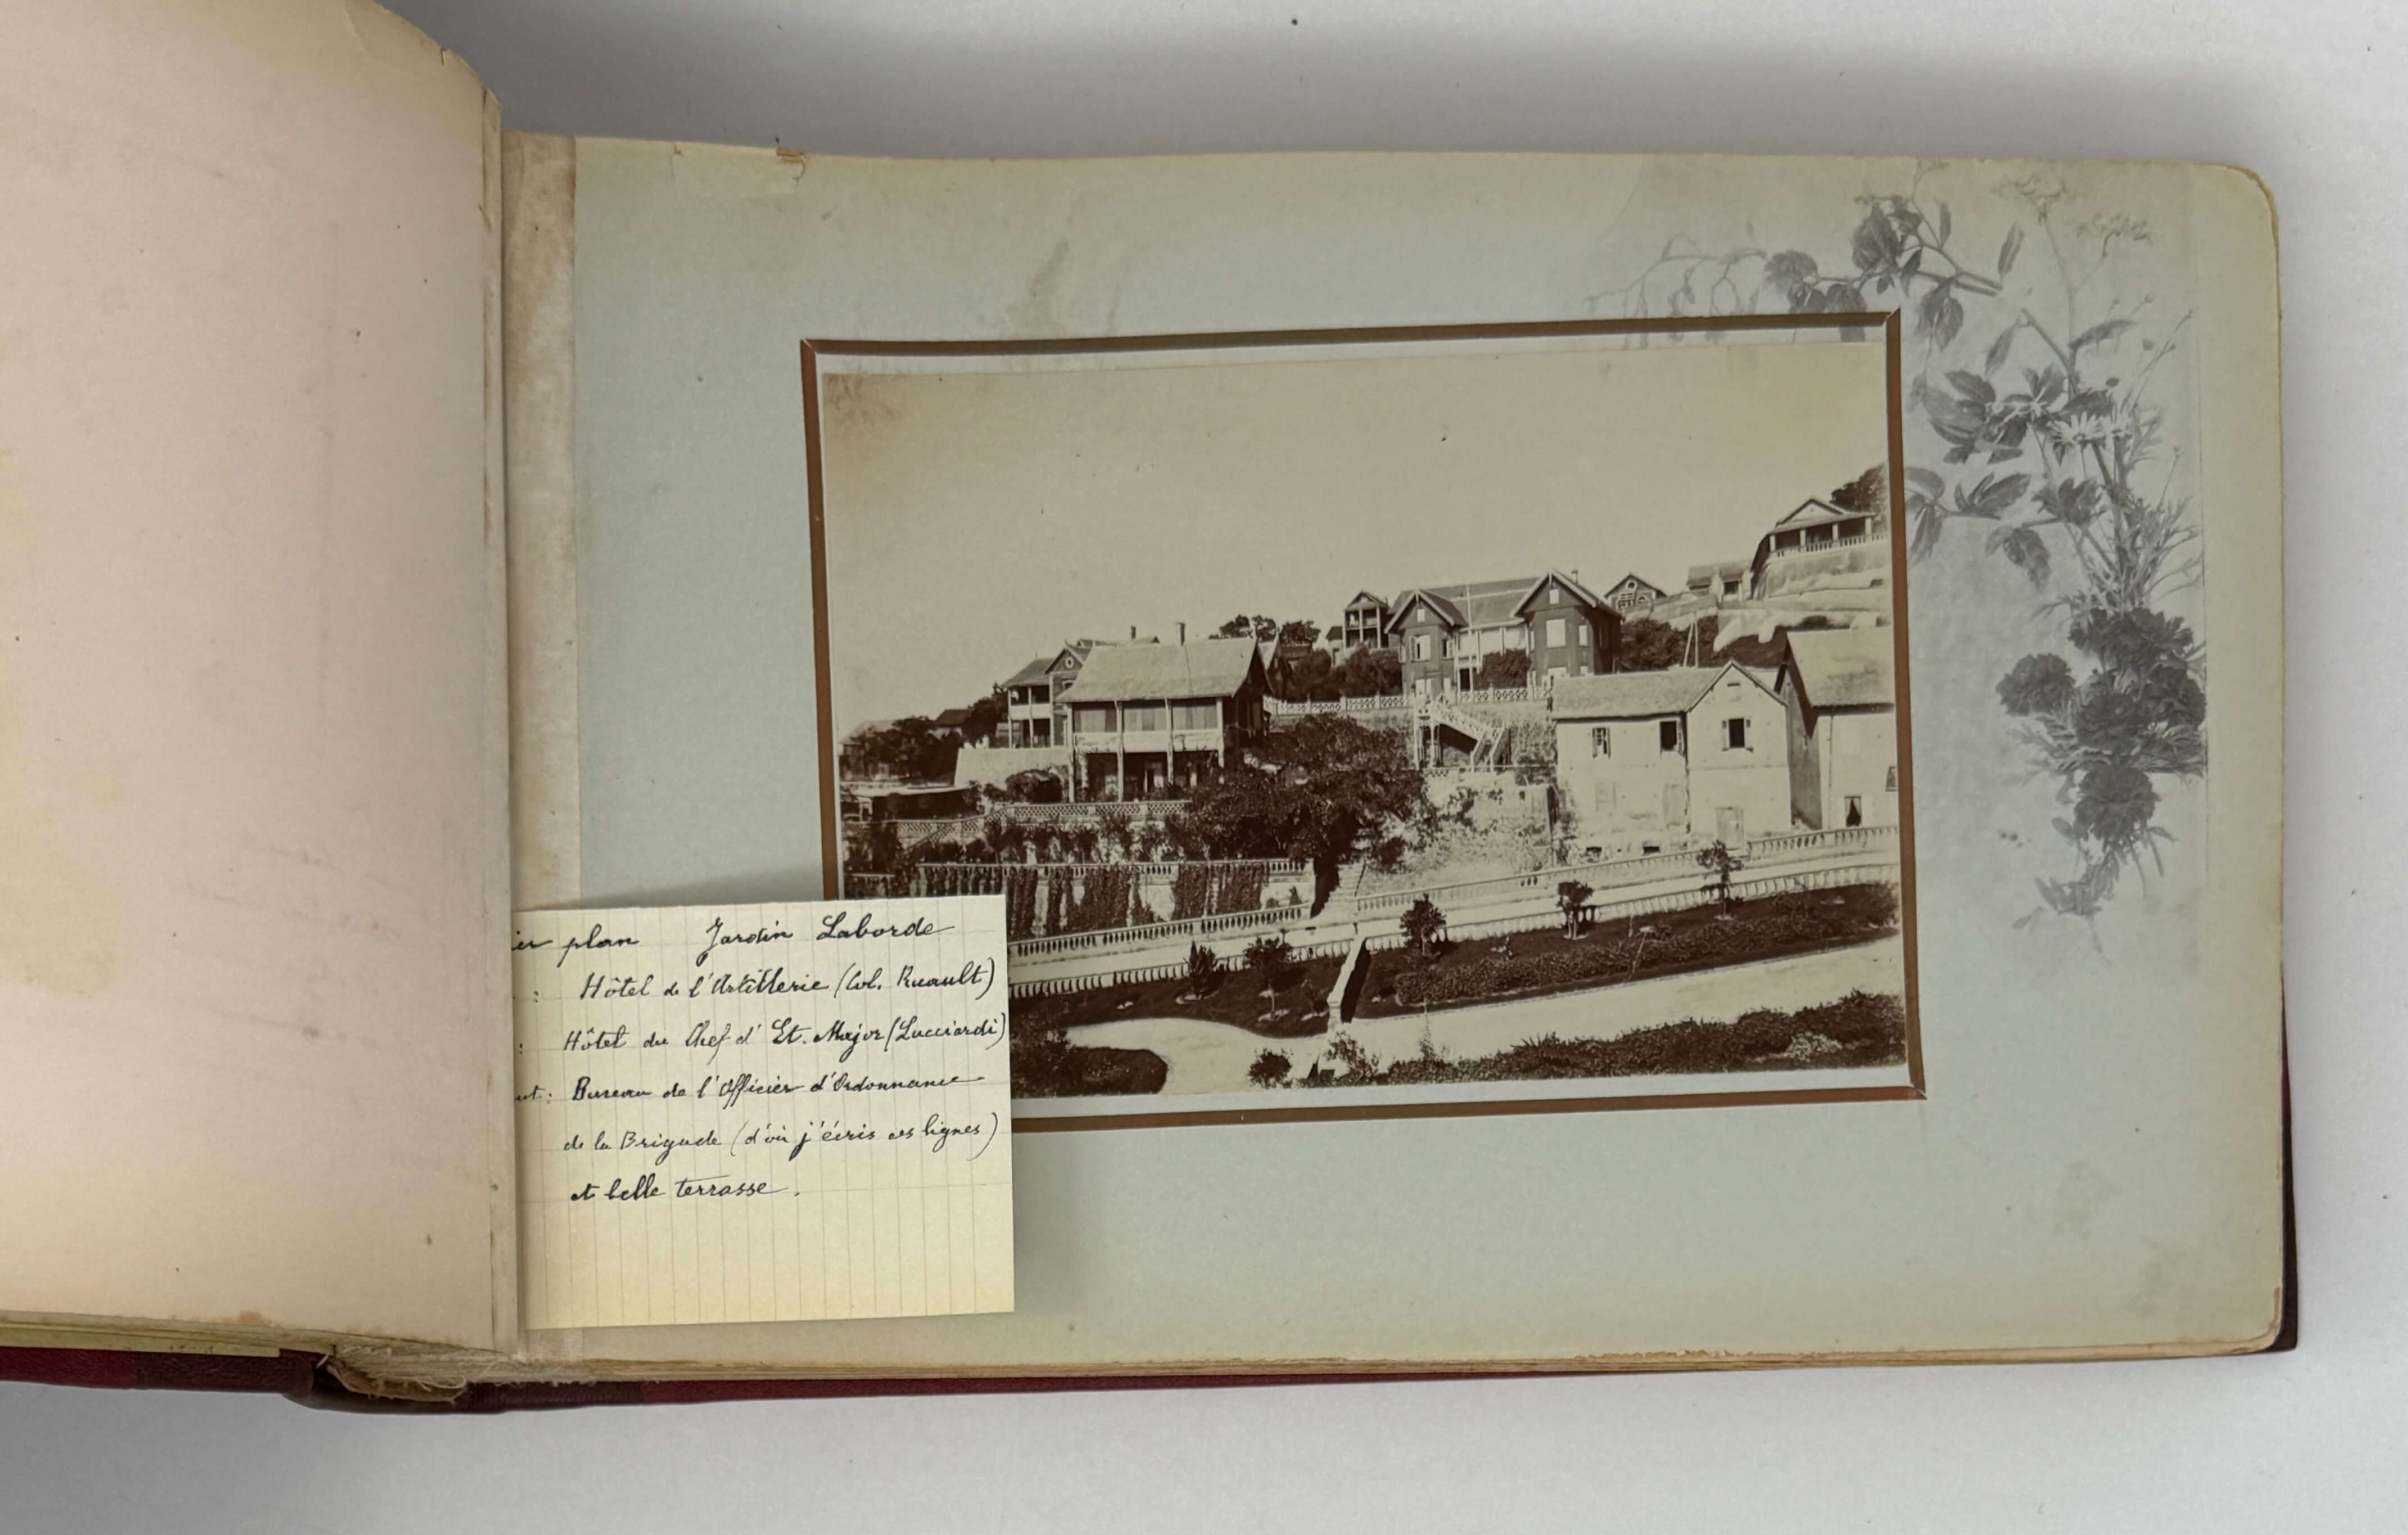 ier plan Jardin Laborde
: Hôtel de l'Artillerie (Col. Ruault)
: Hôtel du Chef d'Et. Major (Lucciardi)
ut : Bureau de l'Officier d'Ordonnance
de la Brigade (d'où j'écris ces lignes)
et belle terrasse.